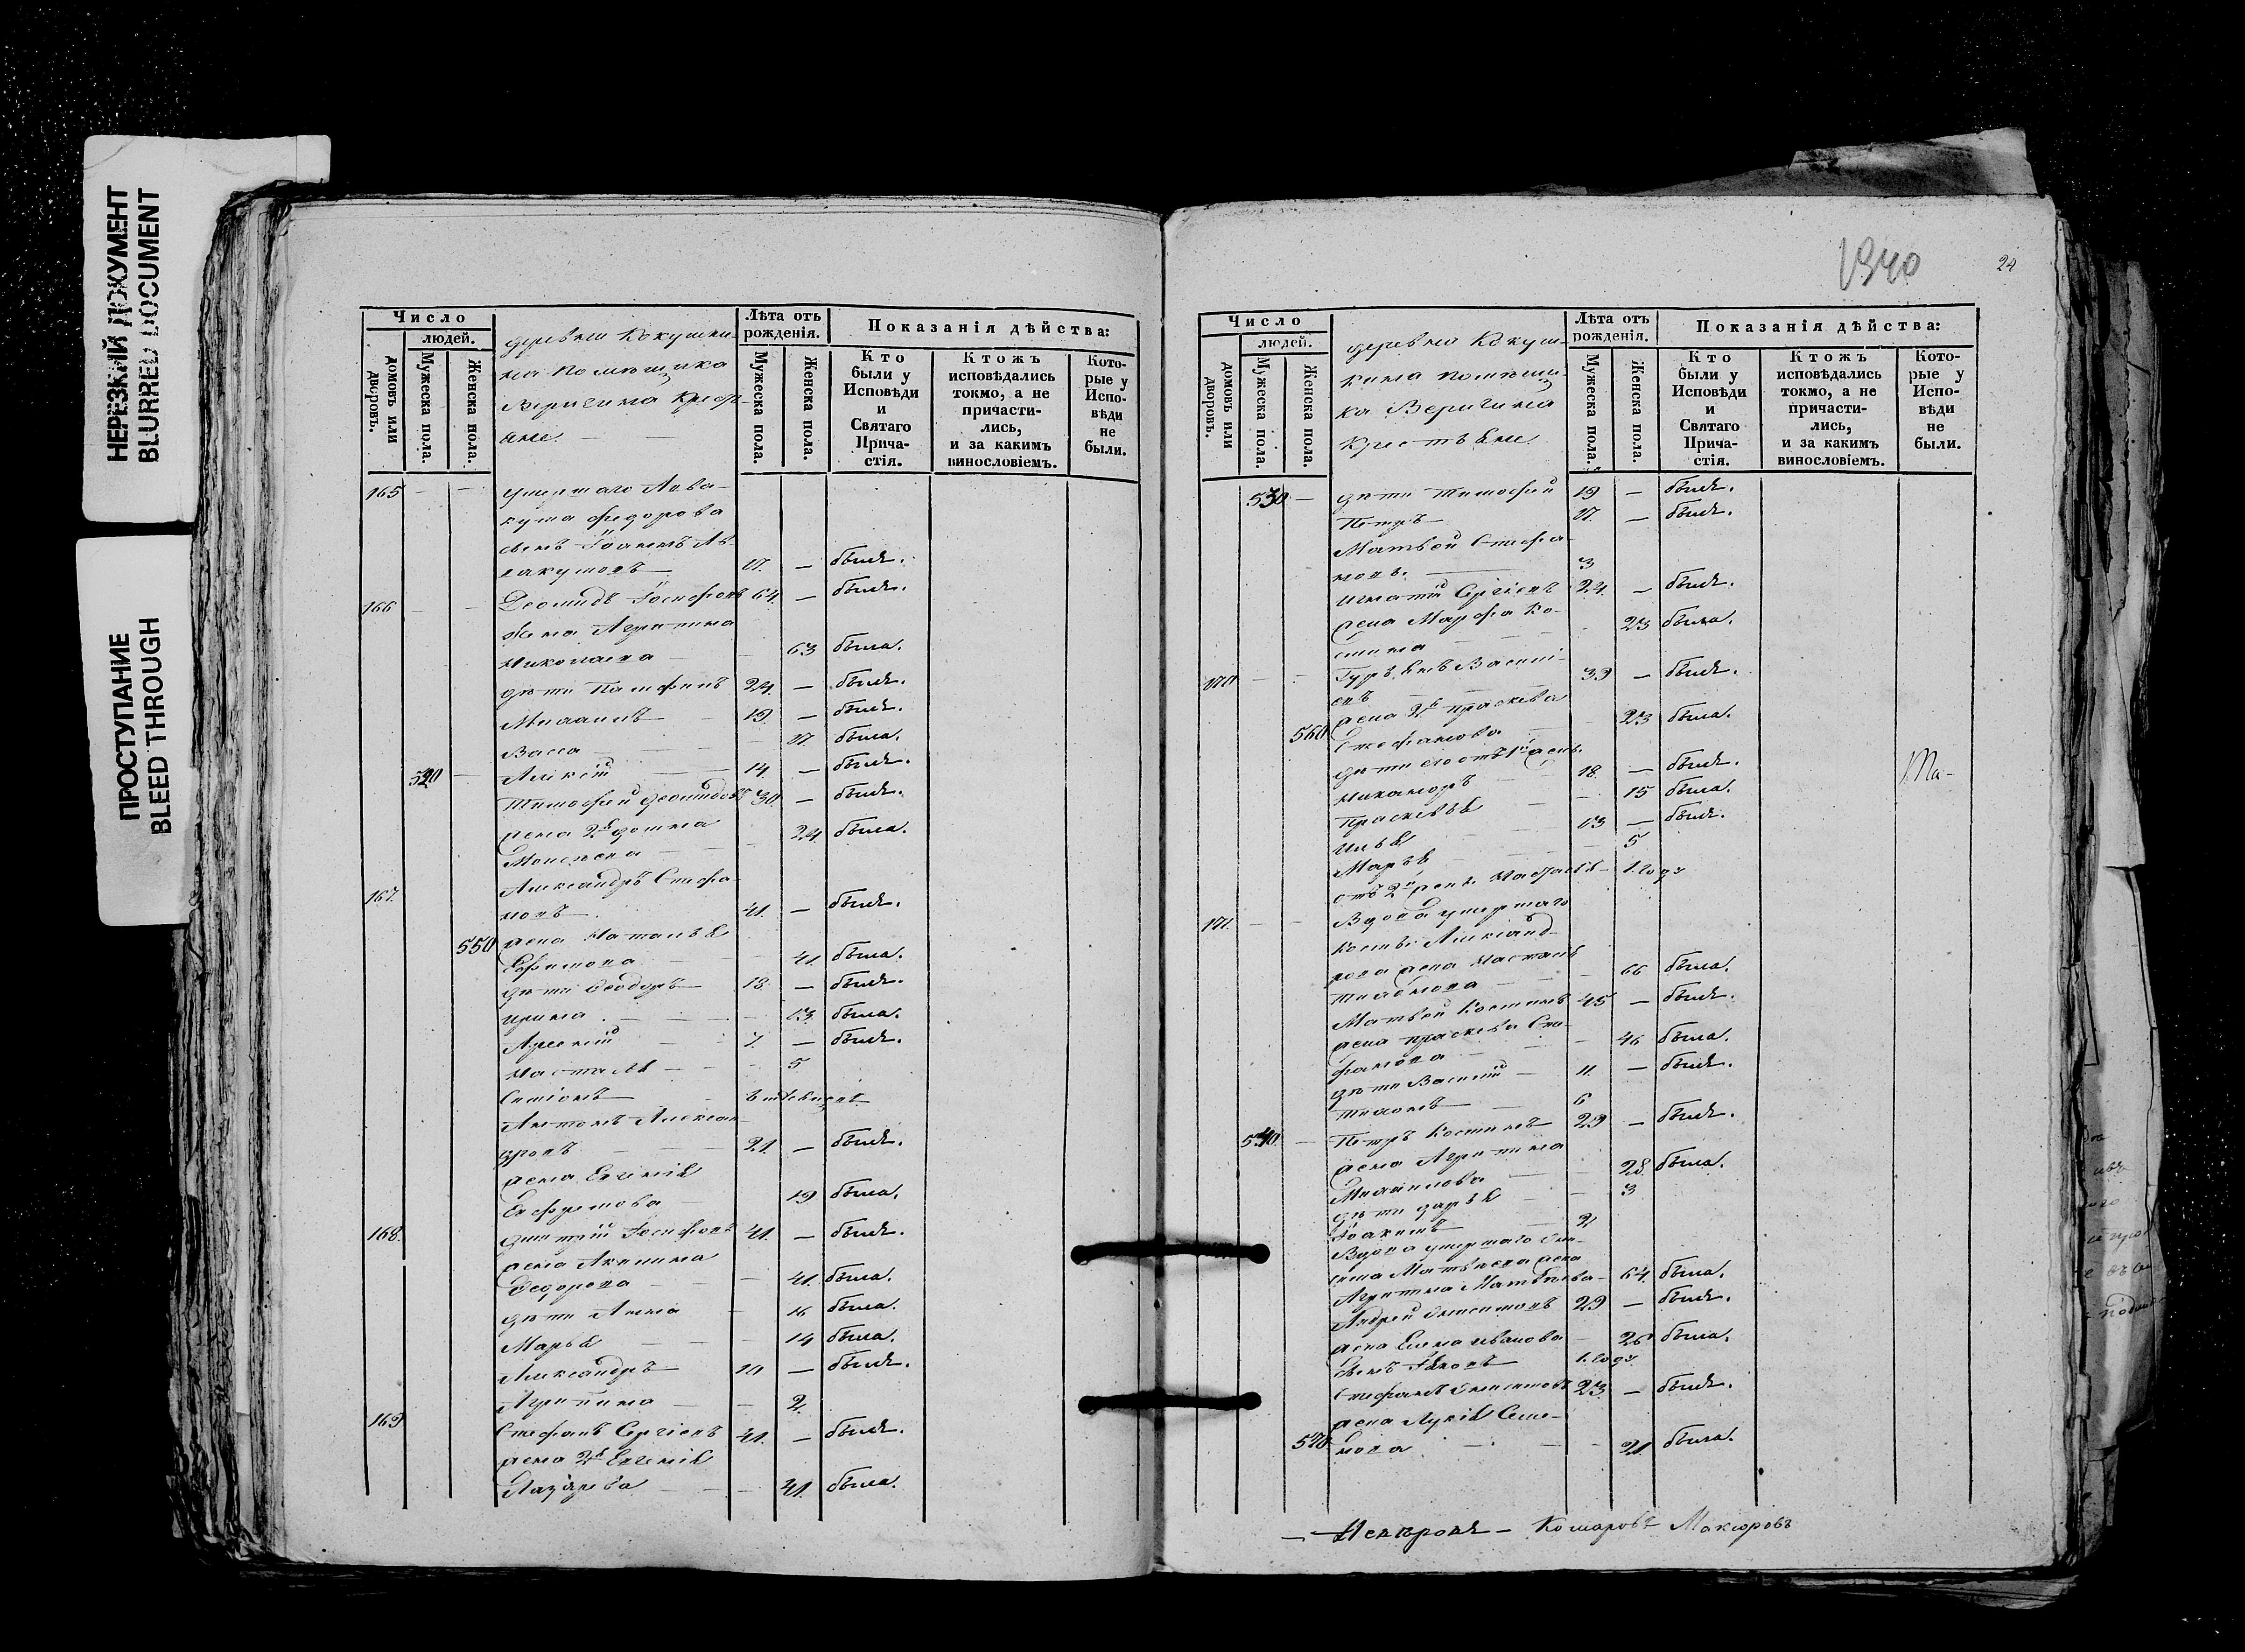 НЕРЕЗКИЙ ДОКУМЕНТ
BLURRED DOCUMENT
ПРОСТУПАНИЕ
BLEED THROUGH
Число
людей.
домовъ или дворовъ.
Мужеска пола.
Женска пола.
деревни Кокушки-
на помѣщика
Веригина крест-
яне.
Лѣта отъ рожденія.
Мужеска пола.
Женска пола.
Показанія дѣйства:
Кто были у Исповѣди и Святаго Прича-стія.
Ктожъ исповѣдались токмо, а не причасти-лись, и за какимъ винословіемъ.
Кото-рые у Испо-вѣди не были.
165 — — умершаго Авва-
кума Федорова
сынъ Іоаннъ Ав-
вакумовъ — 17. — былъ.
166 — — Деомидъ Іосифовъ 64. — былъ.
жена Агрипина
Николаева — 63 была.
дѣти Памфилъ 24. — былъ.
Михаилъ — 19. — былъ.
Васса — 17. была.
520 — Алексій 14. — былъ.
Тимофей Деомидовъ 30. — былъ.
жена 2я Домна 24 была.
Моисеева
167. Александръ Стефа-
новъ 41. — былъ.
550 жена Наталья
Ефимова — 41. была.
дѣти Феодоръ 18. — былъ.
Ирина — 13. была.
Арсеній 7. — былъ.
Настасья — 5
Симеонъ
Антонъ Алексан-
дровъ 21. — былъ.
жена Евгенія
Ефремова 19 была.
168. Дмитрій Іосифовъ 41. — былъ.
жена Акилина
Федорова — 41. была.
дѣти Анна — 16 была.
Марья — 14 была.
Александръ 10 — былъ.
Агрипина — 2.
169 Стефанъ Сергіевъ 41. — былъ.
жена 2я Евгенія
Лазарева — 41. была.
1340
24
Число
людей.
домовъ или дворовъ.
Мужеска пола.
Женска пола.
деревни Кокуш-
кина помѣщи-
ка Веригина
Крестьяне
Лѣта отъ рожденія.
Мужеска пола.
Женска пола.
Показанія дѣйства:
Кто были у Исповѣди и Святаго Прича-стія.
Ктожъ исповѣдались токмо, а не причасти-лись, и за какимъ винословіемъ.
Кото-рые у Испо-вѣди не были.
530 — дѣти Тимофей 19 — былъ.
Петръ — 17. — былъ.
Матвѣй Стефа-
новъ. 3
Игнатій Сергіевъ 24. — былъ.
жена Марфа Ко- 23 была.
стина
170 — — Гурьянъ Василі- 39 — былъ.
евъ
жена 2я Праскева 23 была.
560 Стефанова
дѣти его отъ 1й жены
Никаноръ 18. — былъ.
Прасковья 15 была.
Илья 13 — былъ.
Марья 5
отъ 2й жены Настасья — 1. году
171. — — Вдова умершаго
Косьмы Александ-
рова жена Настасья
66 была.
Матвѣй Костинъ 45 — былъ.
жена Праскева Сте-
фанова — 46 была.
дѣти Василій — 11. — былъ.
Тихонъ 6
540. — Петръ Костинъ 29 — былъ.
жена Агрипина
Михаилова 28. была.
дѣти Дарья — 3
Іоакимъ 2
Вдова умершаго
Матвѣева жена
Агрипина Матвѣева — 64. была.
Андрей 29 — былъ.
жена Елена Иванова — 26 была.
сынъ Іаковъ 1. году.
Стефанъ 23. — былъ.
жена Лукія Семе-
570 нова — 21. была.
Та-
Комаровъ Макаровъ